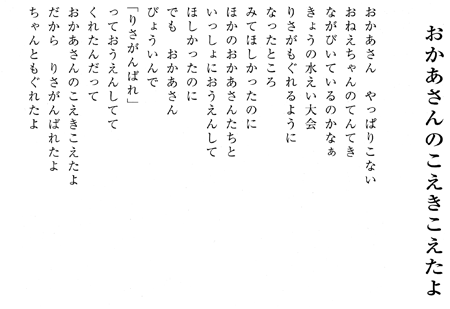 おかあさんのこえきこえたよ
おかあさん　やっぱりこない
おねえちゃんのてんてき
ながびいているのかなぁ
きょうの水えい大会
りさがもぐれるように
なったところ
みてほしかったのに
ほかのおかあさんたちと
いっしょにおうえんして
ほしかったのに
でも　おかあさん
びょういんで
「りさがんばれ」
っておうえんしてて
くれたんだって
おかあさんのこえきこえたよ
だから　りさがんばれたよ
ちゃんともぐれたよ